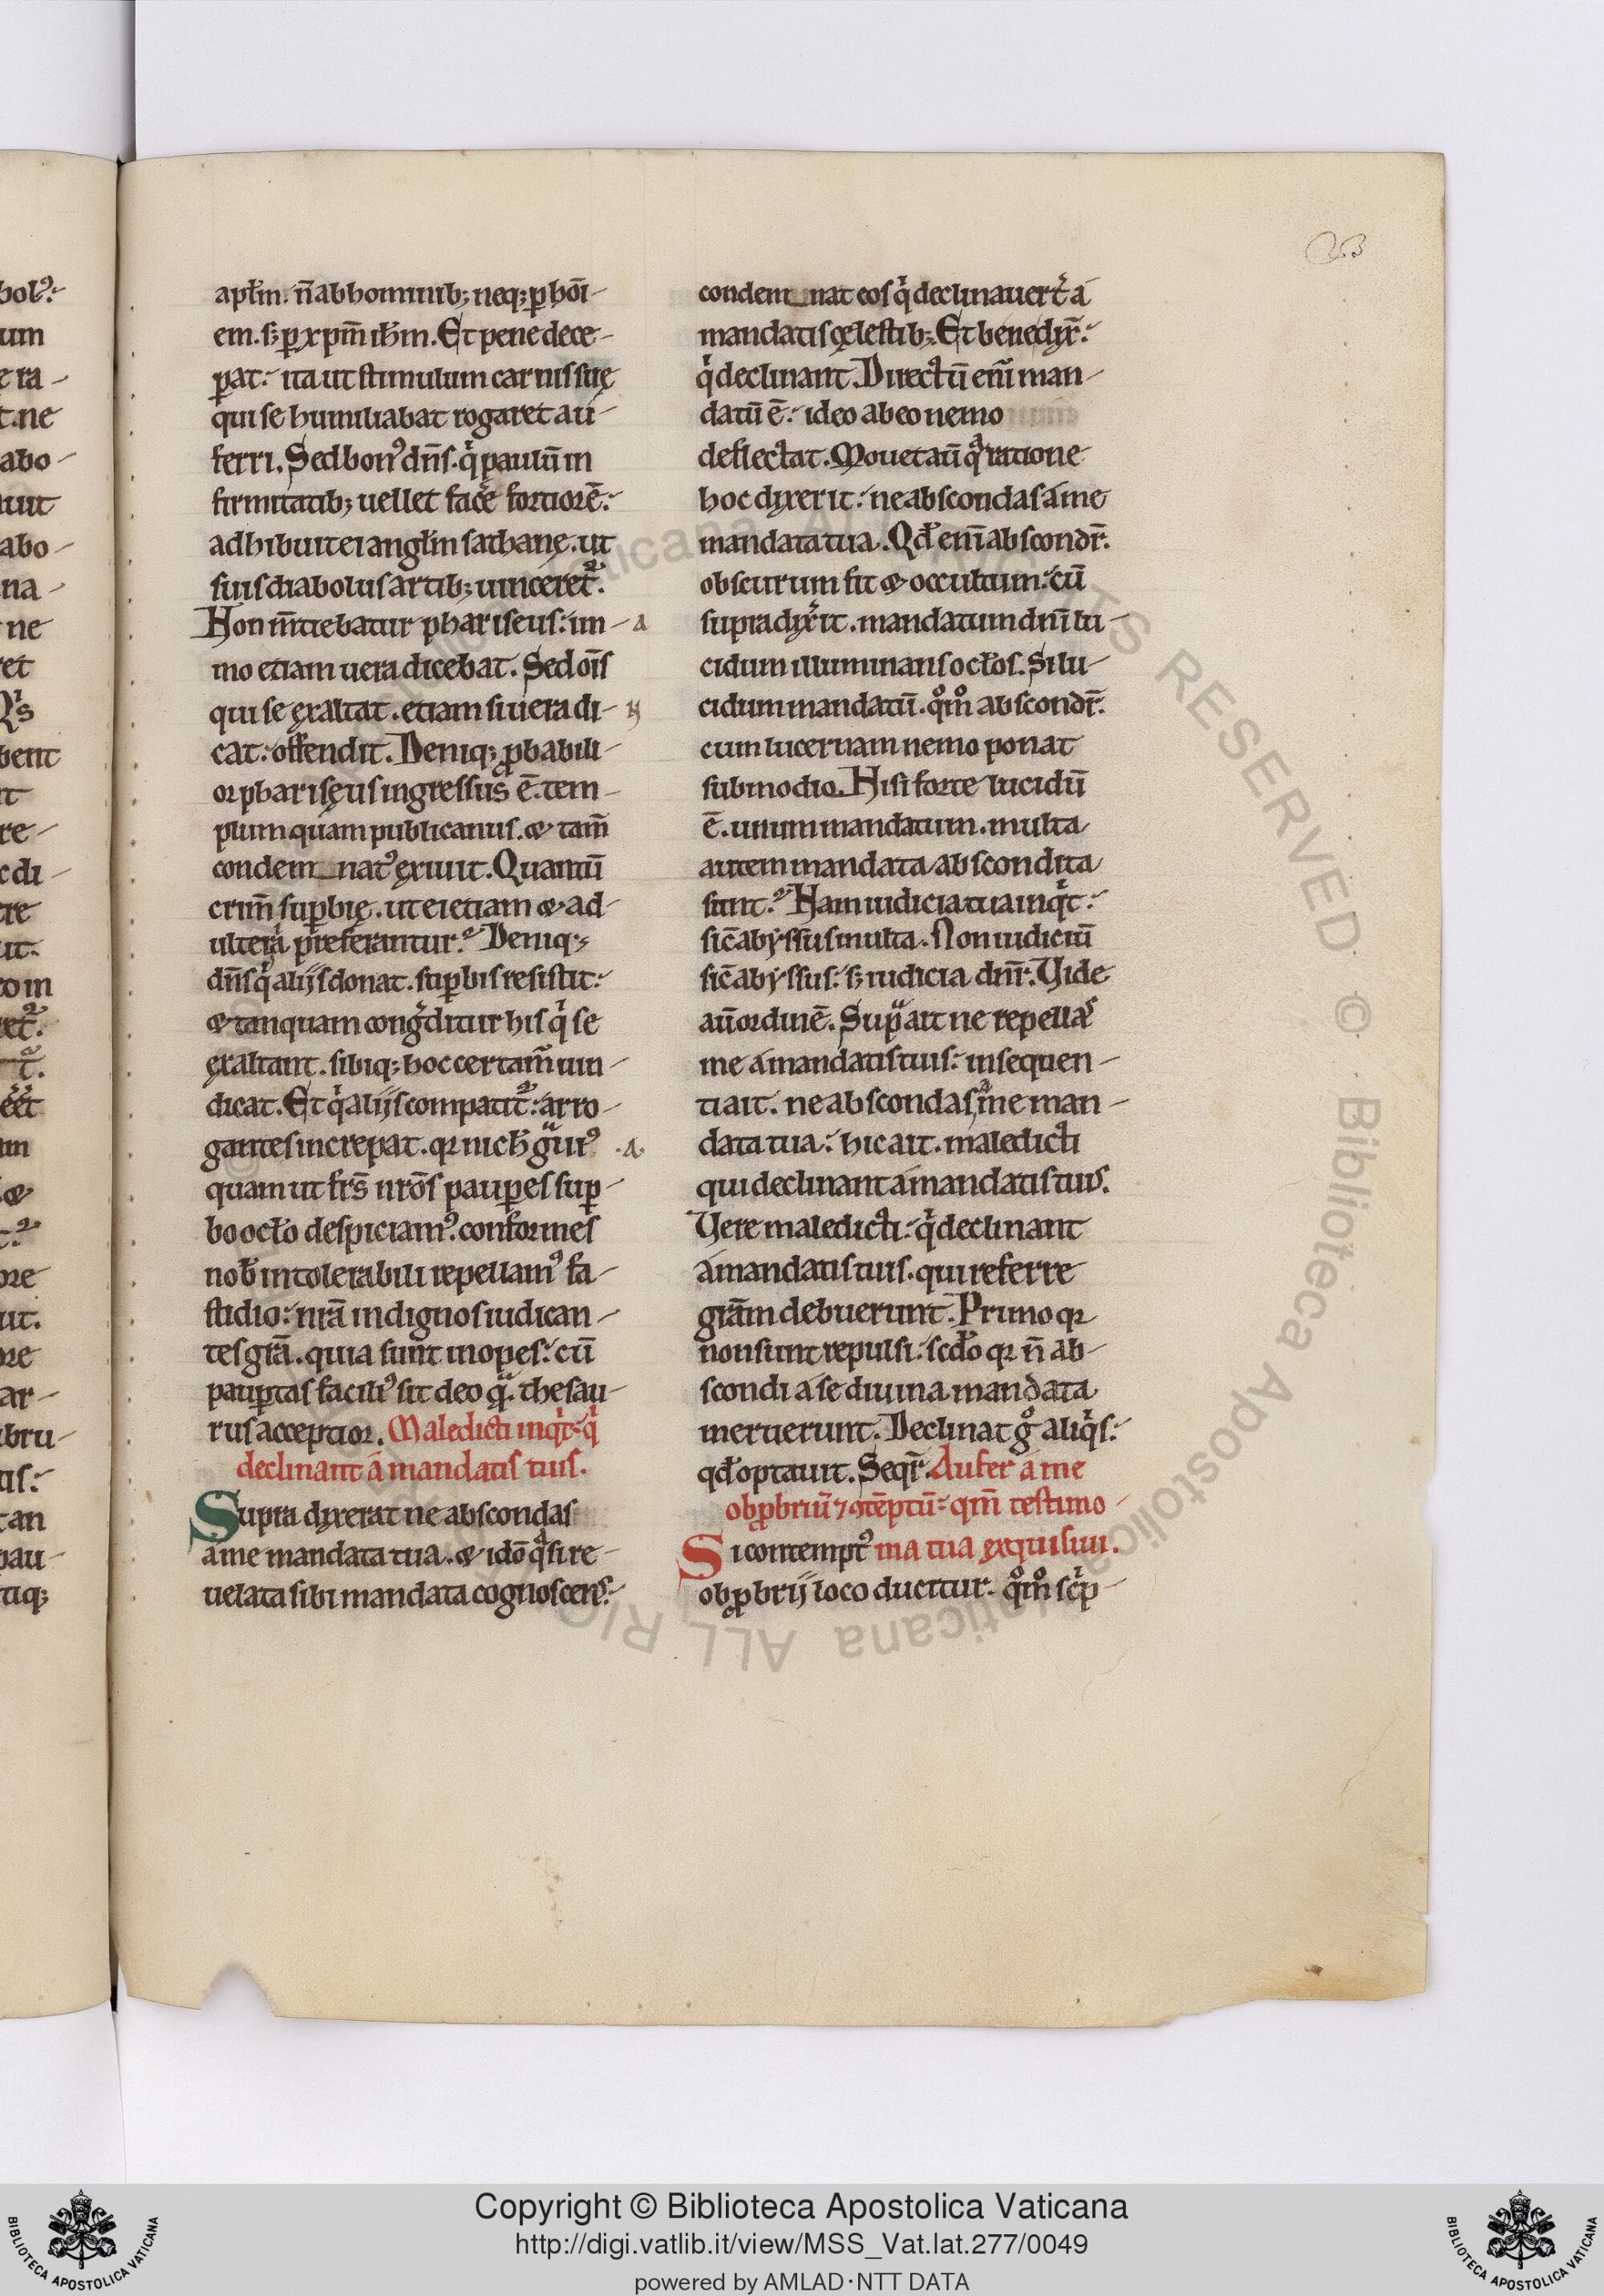 23
bolꝰ.
um
era-
t.ne
abo-
iuit
abo-
na-
ne
ret
Qꝛ̍s
bent
re-
cdi-
tre
ut.
coin
ore
ut.
ore
ar-
bru-
tis:
tan
pau-
tiqꝫ
apłm. n̄ ab hominibꝫ neqꝫ ꝑ hōi-
em. sꝫ ꝑ xp̄m ih̄m. Et pene dece-
ꝑat: ita ut stimulum carnis suę
qui se humiliabat rogaret au-
ferri. Sed bonꝰ dn̄s. qͥ paulū in
firmitatibꝫ uellet fac̄e fortiorē:
adhibuit ei angłm sathanę. ut
suis diabolus artibꝫ uinceret᷑.
Non m̄tiebatur phariseus: im-
mo etiam uera dicebat. Sed oīs
qui se exaltat. etiam si uera di-
cat: offendit. Deniqꝫ ꝓbabili-
or pharisęus ingressus ē. tem-
plum quam publicanus. & tam̄
condem_natꝰ exiuit. Quantū
crim̄ suꝑbię. ut ei etiam & ad-
ulteria p̄referantur? Deniqꝫ
dn̄s qͥ alijs donat. suꝑbis resistit:
& tanquam congͣditur his qͥ se
exaltant. sibiqꝫ hoc certam̄ uin-
dicat. Et qͥ alijs compatit᷑: arro-
gantes increpat. qꝛ nich̄ gͣuiꝰ
quam ut fr̄s nr̄os pauꝑes suꝑ-
bo ocło despiciamꝰ. conformes
nob̄ intolerabili repellamꝰ fa-
stidio: nr̄a indignos iudican-
tes gr̄a. quia sunt inopes: cū
pauꝑtas faciliꝰ sit deo qͣ. thesau-
rus acceptior. Maledicti inqͥt: qͥ
declinant a mandatis tuis.
Supra dixerat ne abscondas
a me mandata tua. & idō qͣsi re-
uelata sibi mandata cognosceret:
condem_nat eos qͥ declinauert̄ a
mandatis cęlestibꝫ. Et bene dix̄:
qͥ declinant. Directū enī man-
datū ē: ideo ab eo nemo
deflectat. Mouet aū qͣ ratione
hoc dixerit: ne abscondas a me
mandata tua. Qd̄ enī abscondr̄.
obscurum fit & occultum: cū
supra dix̄it. mandatum dn̄i lu-
cidum illuminans ocłos. Si lu-
cidum mandatū. qͦmͦ abscondr̄.
cum lucernam nemo ponat
sub modio. Nisi forte lucidū
ē. unum mandatum. multa
autem mandata abscondita
sunt? Nam iudicia tua inqͥt:
sic̄ abyssus multa. Non iudiciū
sic̄ abyssus: sꝫ iudicia dnr̄. Vide
aū ordinē. Supͣ ait ne repellas
me a mandatis tuis: in sequen-
ti ait. ne abscondas a me man-
data tua: hic ait. maledicti
qui declinant a mandatis tuis.
Vere maledicti: qͥ declinant
a mandatis tuis. qui referre
gr̄am debuerunt. Primo qꝛ
non sunt repulsi: scd̄o qꝛ n̄ ab-
scondi a se diuina mandata
meruerunt. Declinat gͦ aliqͥs:
qd̄ optauit. Seqr̄. Aufer a me
obꝓbriū ⁊ ꝯtēptū: qm̄ testimo-
Si contemptꝰ nia tua exquisiui.
obꝓbrij loco ducitur. qͦmͦ scͥp-
Copyright © Biblioteca Apostolica Vaticana
http://digi.vatlib.it/view/MSS_Vat.lat.277/0049
powered by AMLAD·NTT DATA